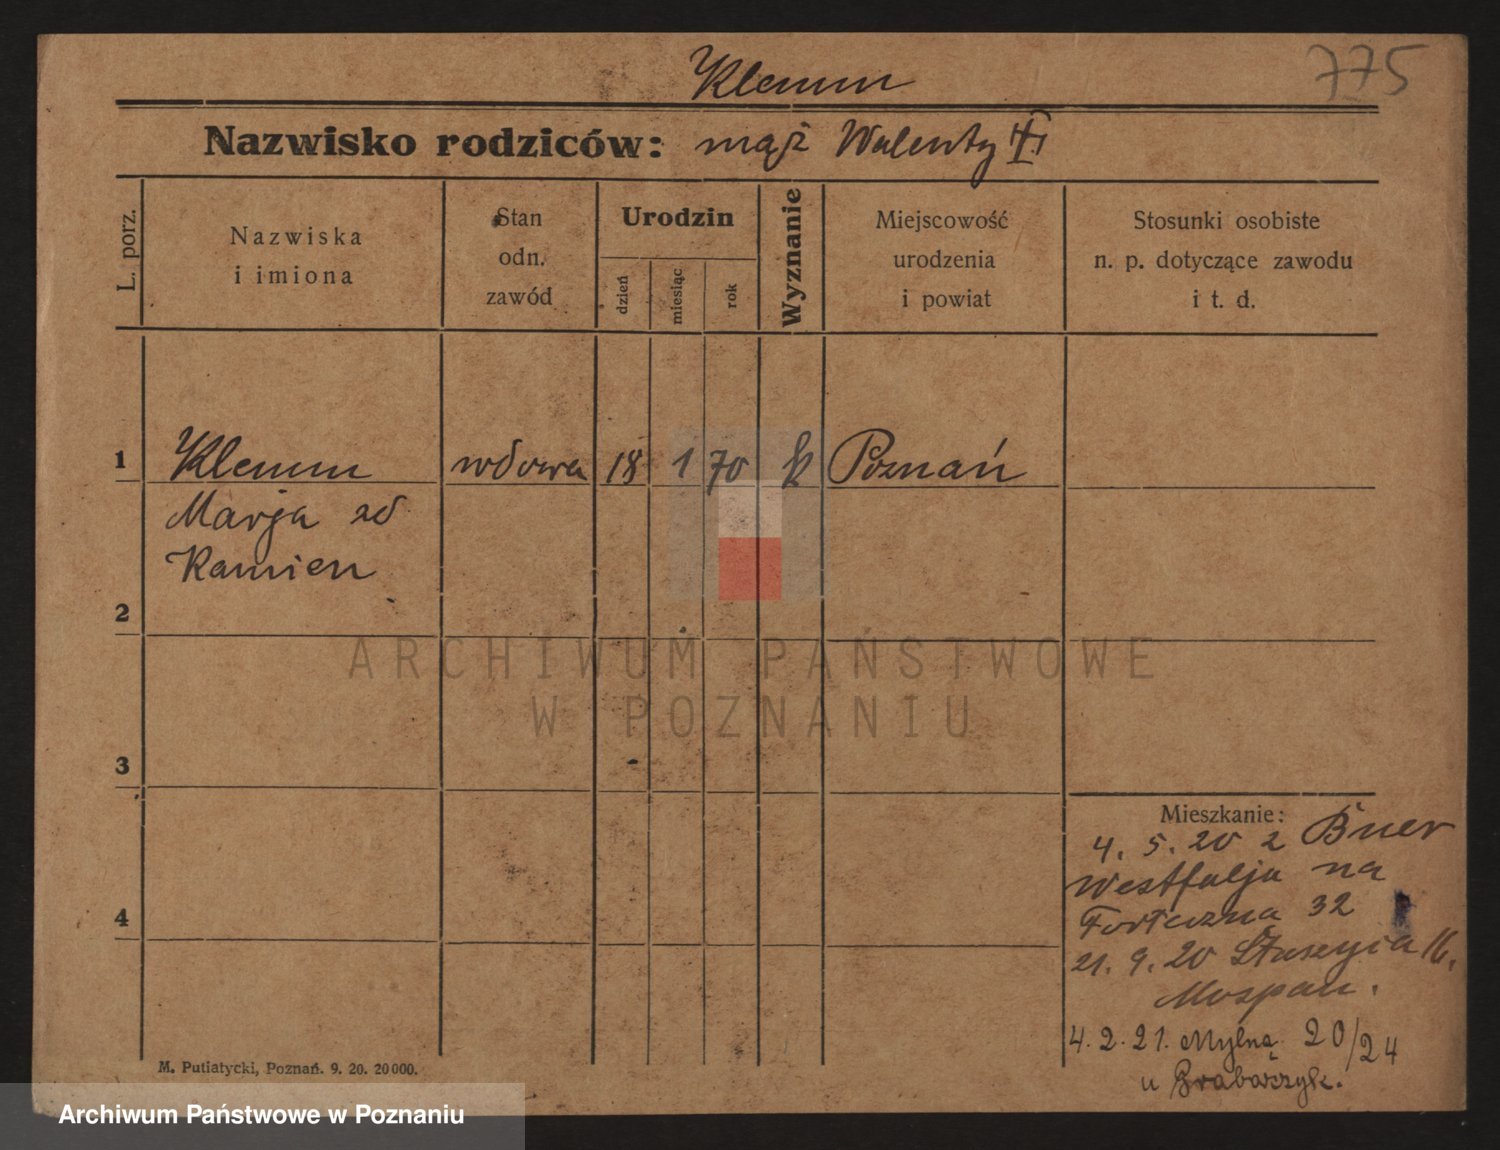 Klemm
775
Nazwisko rodziców: mąż Walenty
L. porz.
Nazwiska i imiona
Stan odn. zawód
Urodzin
dzień
miesiąc
rok
Wyznanie
Miejscowość urodzenia i powiat
Stosunki osobiste n. p. dotyczące zawodu i t. d.
1 Klemm wdowa 18 1 70 k Poznań
Marja zd
Kamien
2
3
4
Mieszkanie:
4. 5. 20 z Buer
Westfalja na
Forteczna 32
21. 9. 20 Staszyca 16.
Mospan.
4. 2. 21. Mylna 20/24
u Grabarzyk.
M. Putiatycki, Poznań. 9. 20. 20000.
ARCHIWUM PAŃSTWOWE
W POZNANIU
Archiwum Państwowe w Poznaniu